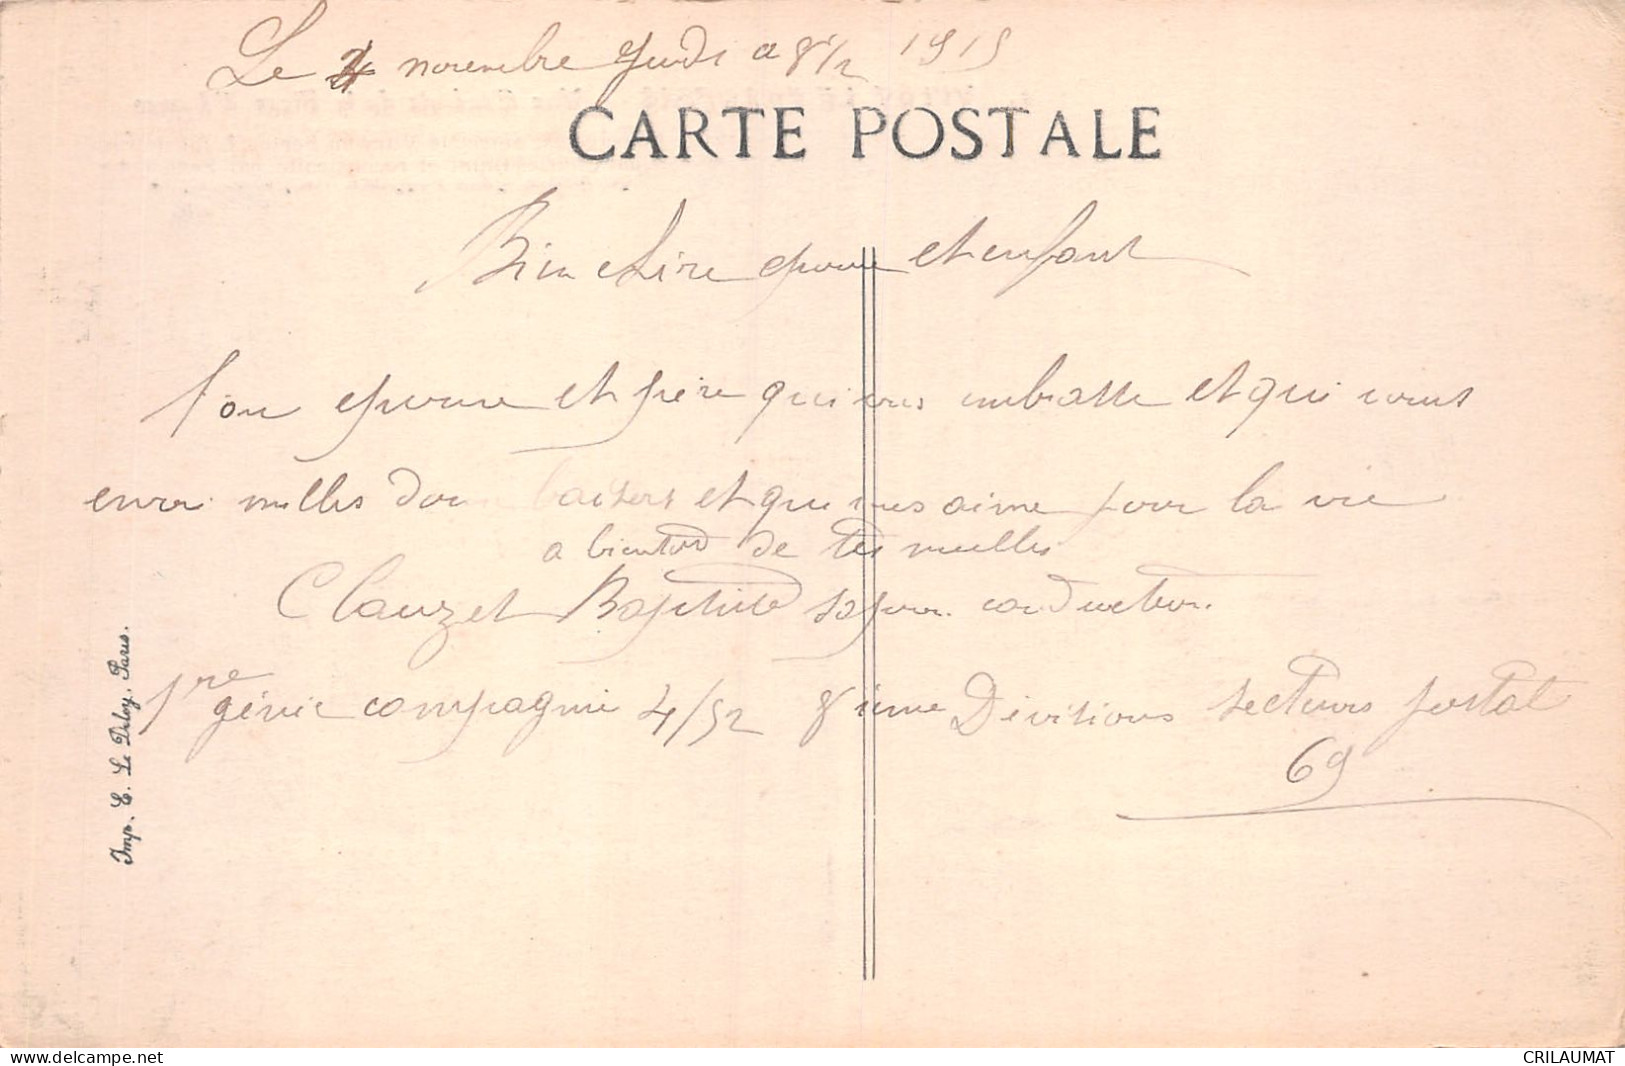 Le 4 novembre Jeudi a 8 1/2 1915
CARTE POSTALE
Bien chire epouse et enfant
Ton epouse et pére qui vous embrasse et qui vous
envoi milles dou baisers et qui vous aime pour la vie
a bientod de tes nuelles
Clauzet Baptiste sapeur conducteur.
1re génie compagnie 4/52 8ième Divisions secteurs postal
69
Imp. E. Le Deley, Paris.
delcampe.net
CRILAUMAT